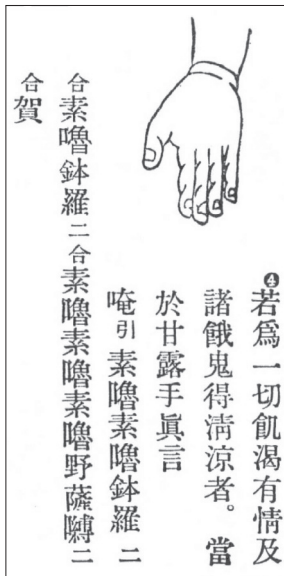 ❹若爲一切飢渴有情及
諸餓鬼得淸涼者。當
於甘露手眞言
唵引素嚕素嚕鉢羅二
合素嚕鉢羅二合素嚕素嚕素嚕野薩嚩二
合賀